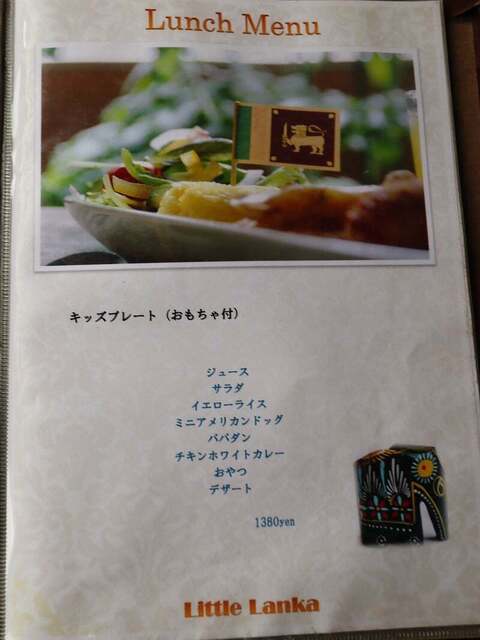 Lunch Menu
キッズプレート（おもちゃ付）
ジュース
サラダ
イエローライス
ミニアメリカンドッグ
パパダン
チキンホワイトカレー
おやつ
デザート
1380yen
Little Lanka